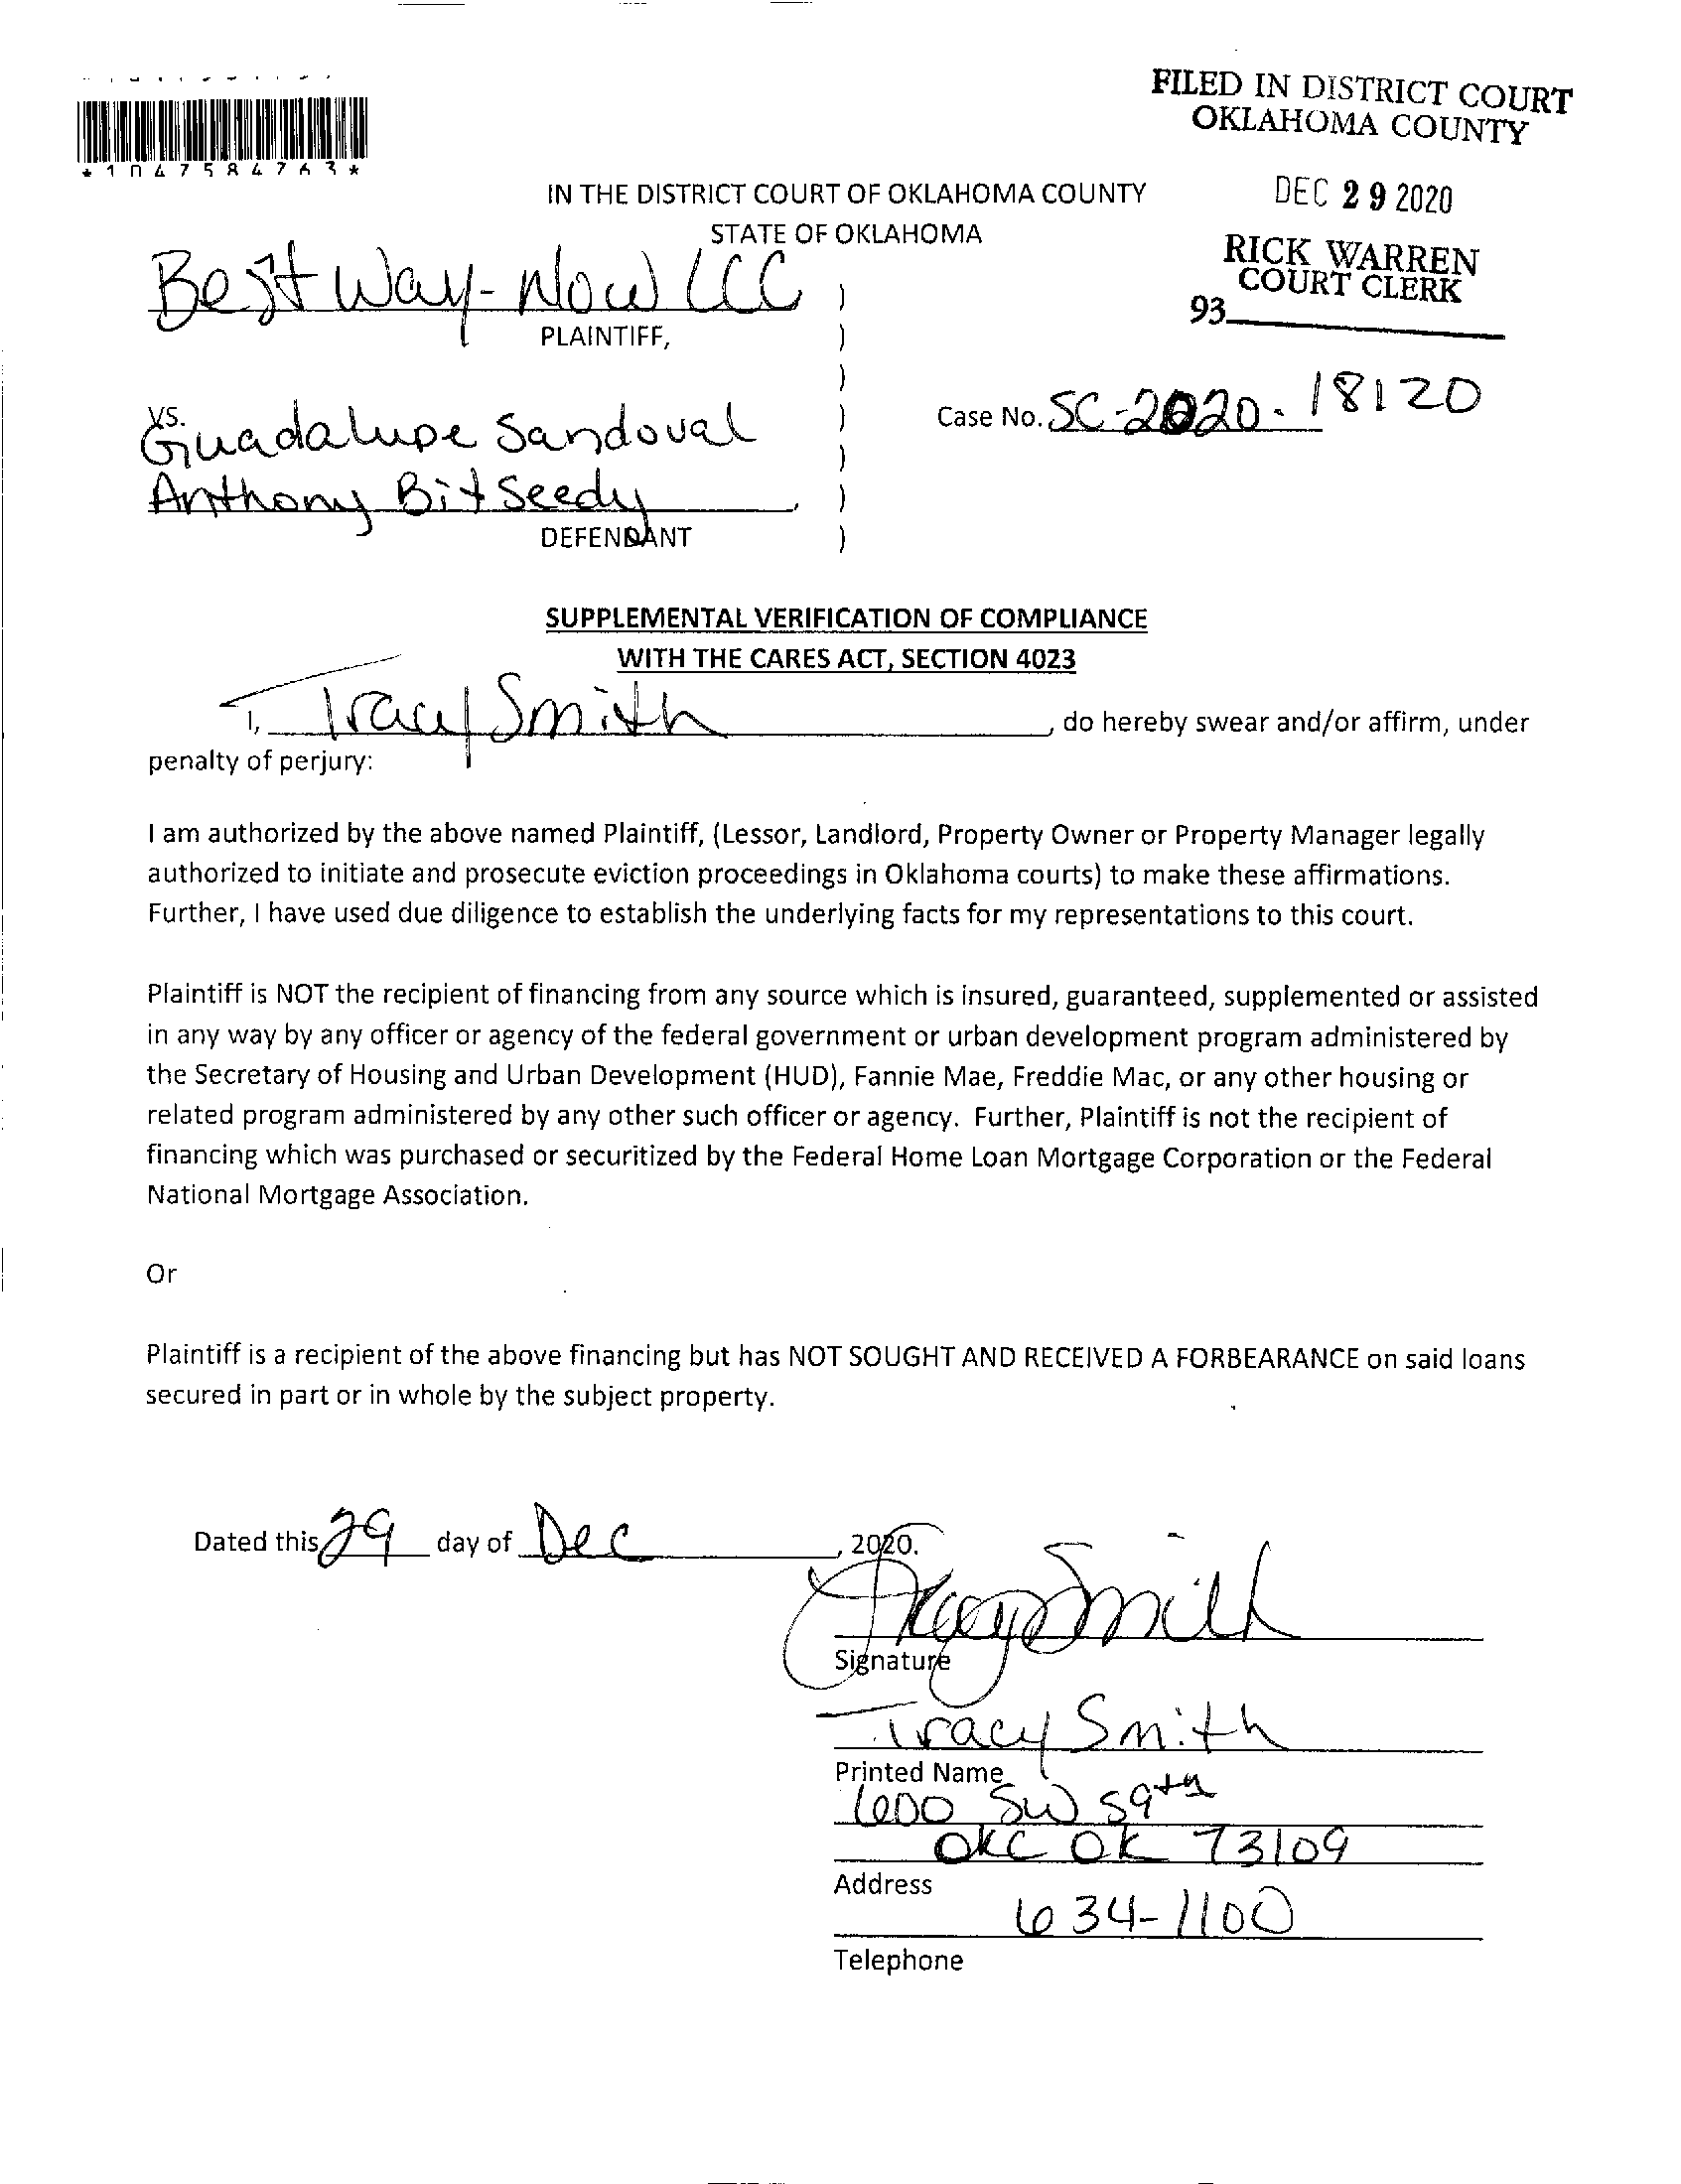 FILED IN DISTRICT COURT
OKLAHOMA COUNTY
*1047584763*
DEC 29 2020
IN THE DISTRICT COURT OF OKLAHOMA COUNTY
STATE OF OKLAHOMA
RICK WARREN
COURT CLERK
93
Best Way-Now LLC )
PLAINTIFF, )
)
vs. )
Case No. SC-2020-18120
Guadalupe Sandoval )
Anthony Bitseedy, )
DEFENDANT )
SUPPLEMENTAL VERIFICATION OF COMPLIANCE
WITH THE CARES ACT, SECTION 4023
I, Tracy Smith, do hereby swear and/or affirm, under
penalty of perjury:
I am authorized by the above named Plaintiff, (Lessor, Landlord, Property Owner or Property Manager legally
authorized to initiate and prosecute eviction proceedings in Oklahoma courts) to make these affirmations.
Further, I have used due diligence to establish the underlying facts for my representations to this court.
Plaintiff is NOT the recipient of financing from any source which is insured, guaranteed, supplemented or assisted
in any way by any officer or agency of the federal government or urban development program administered by
the Secretary of Housing and Urban Development (HUD), Fannie Mae, Freddie Mac, or any other housing or
related program administered by any other such officer or agency. Further, Plaintiff is not the recipient of
financing which was purchased or securitized by the Federal Home Loan Mortgage Corporation or the Federal
National Mortgage Association.
Or
Plaintiff is a recipient of the above financing but has NOT SOUGHT AND RECEIVED A FORBEARANCE on said loans
secured in part or in whole by the subject property.
Dated this 29 day of Dec, 2020.
Tracy Smith
Signature
Tracy Smith
Printed Name
600 SW 59th
OKC OK 73109
Address
634-1100
Telephone